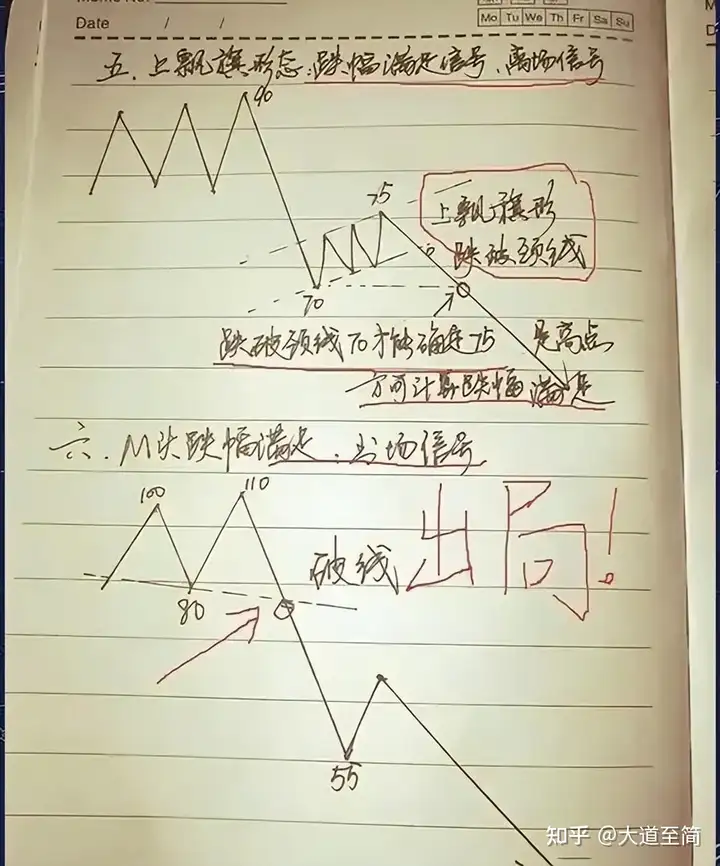 Memo No.
Date / /
Mo Tu We Th Fr Sa Su
五.上飘旗形态:跌幅满足信号、离场信号
90
75
上飘旗形
跌破颈线
70
跌破颈线70才能确定75是高点
方可计算跌幅满足
六.M头跌幅满足.出场信号
100
110
破线出局!
80
55
知乎 @大道至简